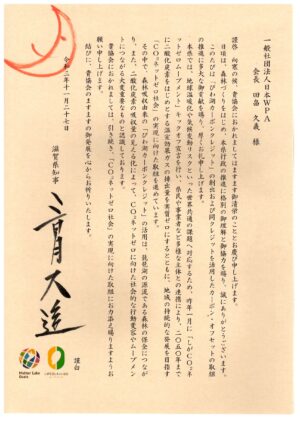 一般社団法人日本ＷＰＡ
会長　田畠　久義　様
謹啓　向寒の候、貴協会におかれましてはますます御清栄のこととお慶び申し上げます。
日頃は、森林づくりをはじめ、本県行政の推進に格別の御理解と御協力を賜り、誠にありがとうございます。
このたびは「びわ湖カーボンクレジット」の創出および同クレジットを活用したカーボン・オフセットの取組
の推進に多大な御貢献を賜り、厚くお礼申し上げます。
本県では、地球温暖化や気候変動リスクといった世界共通の課題へ対応するため、昨年一月に「しがＣＯ₂ネ
ットゼロムーブメント」キックオフ宣言を行い、県民や事業者など多様な主体との連携により、二〇五〇年まで
に二酸化炭素をはじめとする温室効果ガスの排出量を実質ゼロにするとともに、地域の持続的な発展を目指す
「ＣＯ₂ネットゼロ社会」の実現に向けた取組を進めています。
その中で、森林吸収由来の「びわ湖カーボンクレジット」の活用は、琵琶湖の源流である森林の保全につなが
り、また、二酸化炭素の吸収量の見える化によって、ＣＯ₂ネットゼロに向けた社会的な行動変容やムーブメン
トにつながる大変重要なものと認識しております。
貴協会におかれましては、引き続き、「ＣＯ₂ネットゼロ社会」の実現に向けた取組にお力添え賜りますようお
願い申し上げます。
結びに、貴協会のますますの御発展を心からお祈りいたします。
謹白
令和三年十一月二十七日
滋賀県知事
三日月大造
Mother Lake
Goals